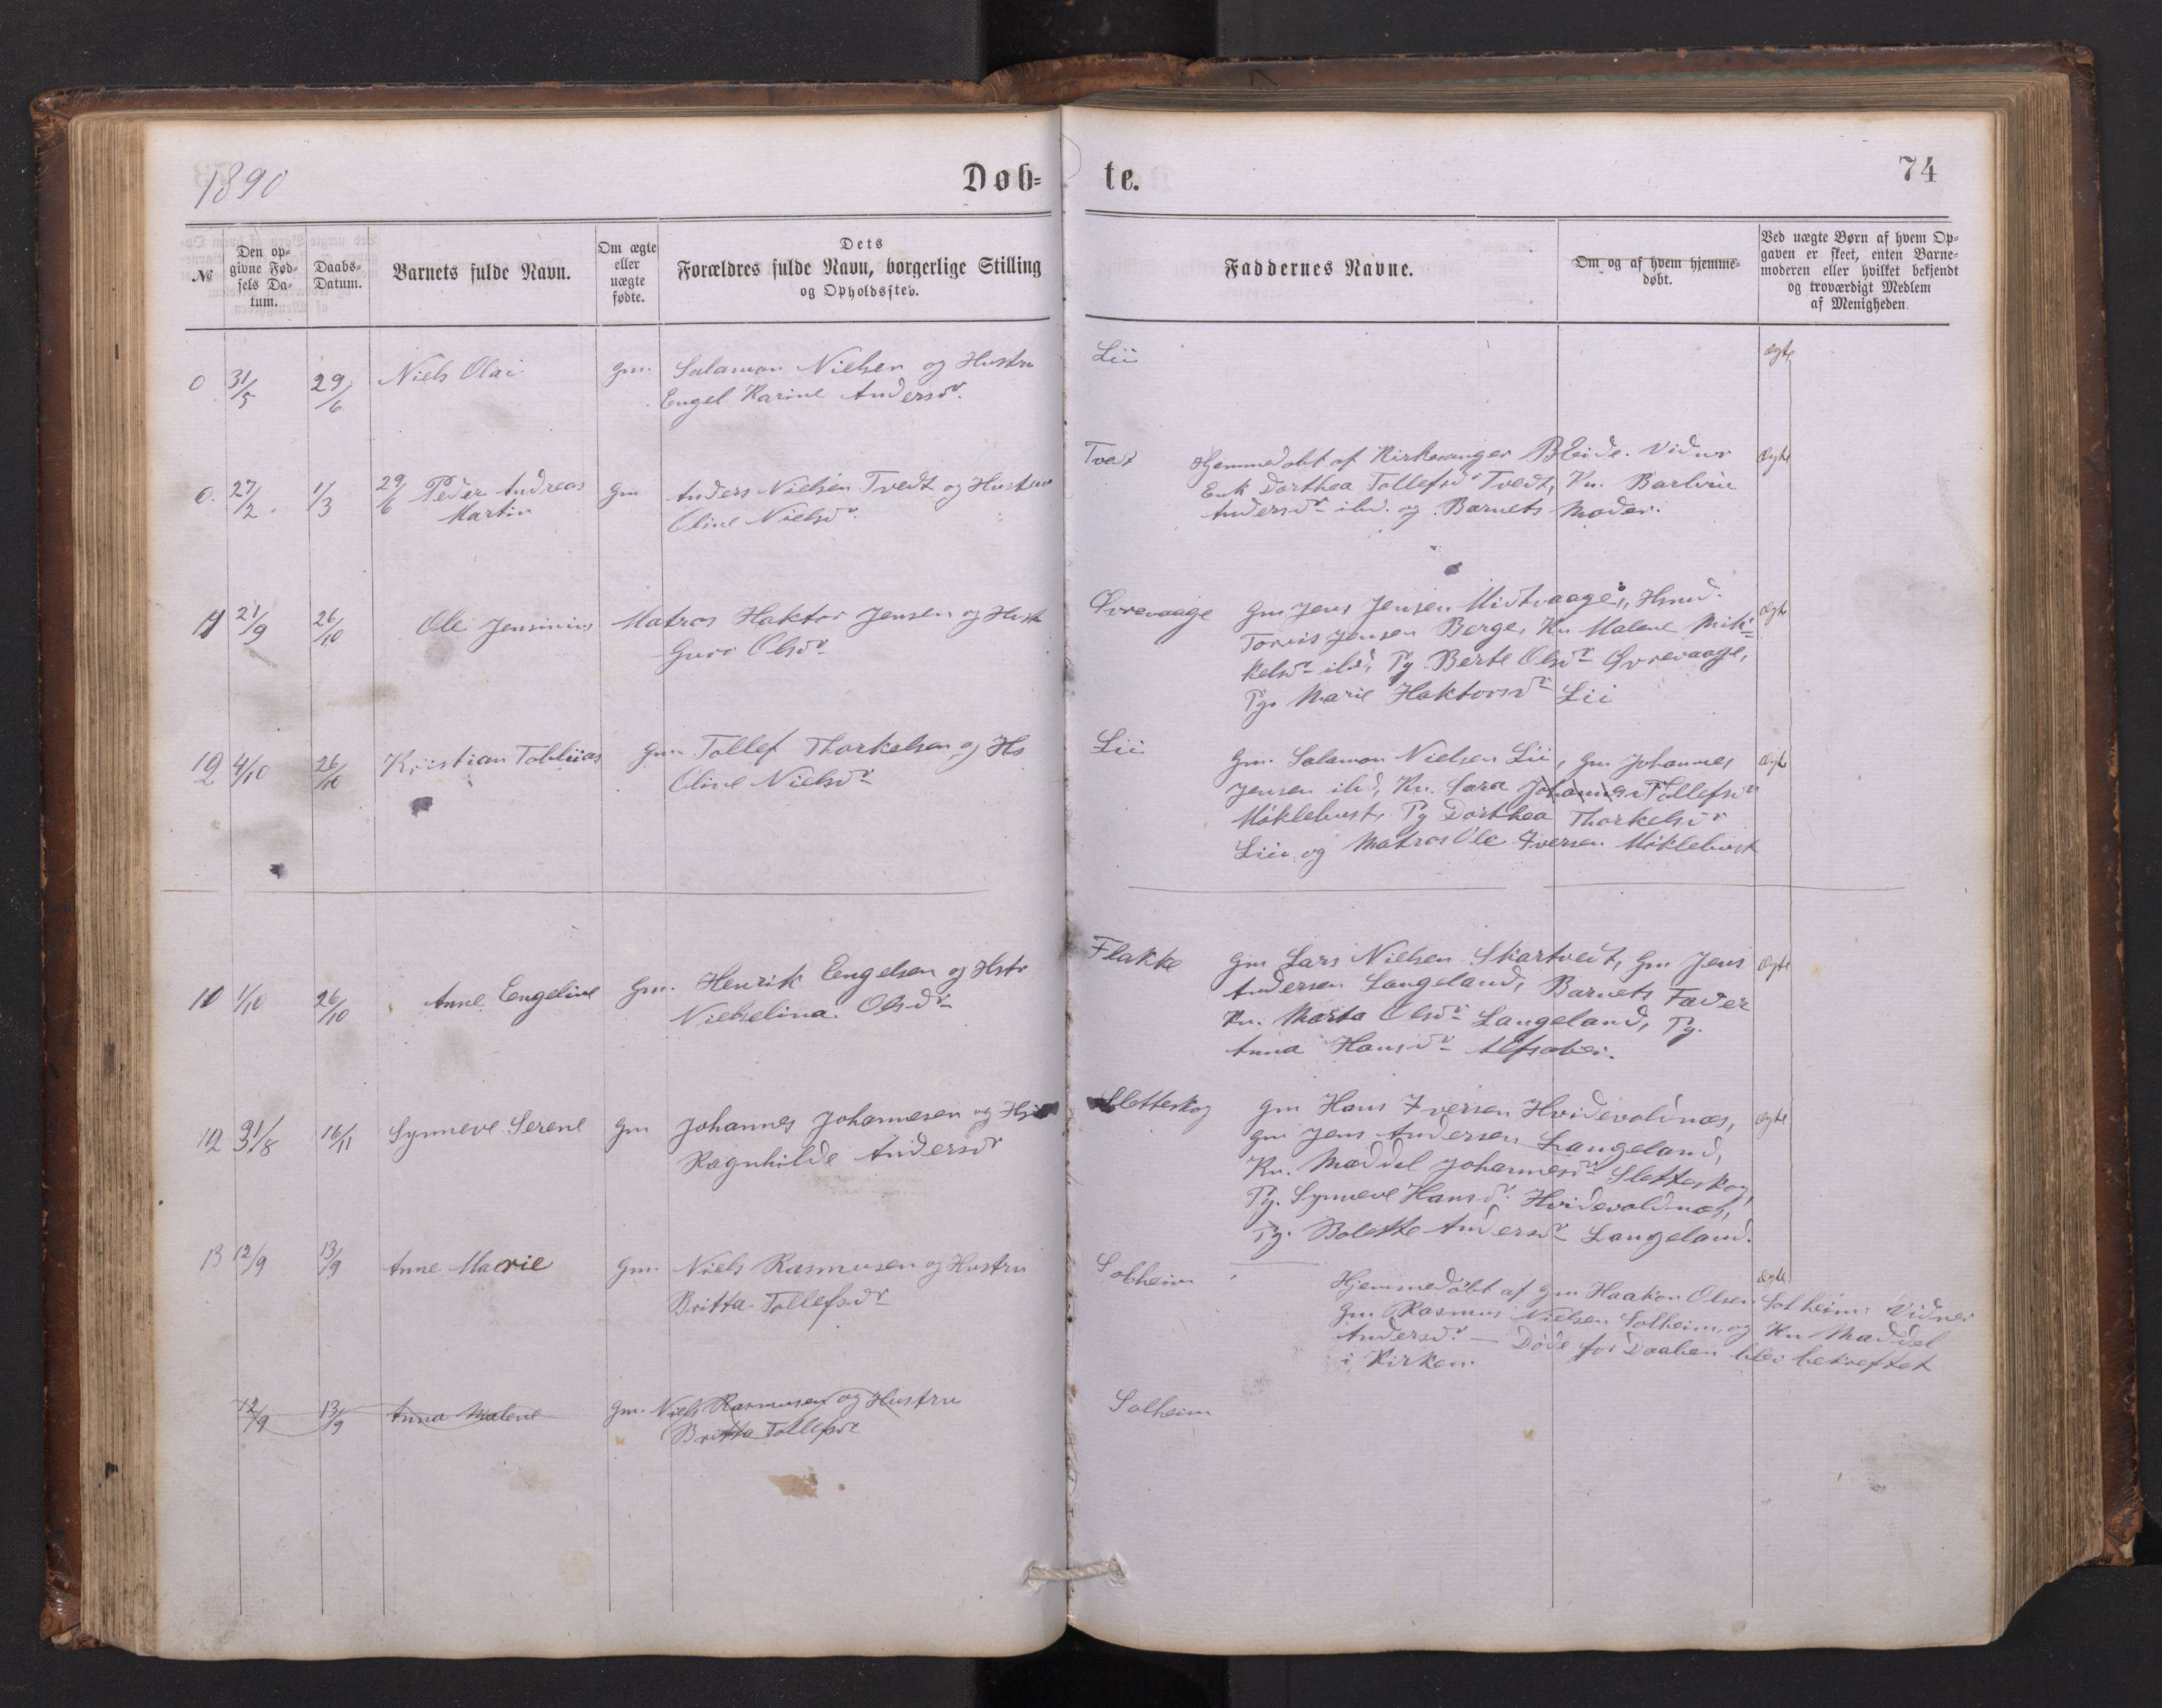 1890
Døb=
te.
74
№
Den op=
givne Fød=
sels Da=
tum.
Daabs=
Datum.
Barnets fulde Navn.
Om ægte
eller
uægte
fødte.
Dets
Forældres fulde Navn, borgerlige Stilling
og Opholdssted.
Faddernes Navne.
Om og af hvem hjemme=
døbt.
Ved uægte Børn af hvem Op=
gaven er skeet, enten Barne=
moderen eller hvilket bekjendt
og troværdigt Medlem
af Menigheden.
0 31/5 29/6 Niels Olai gm. Salamon Nielsen og Hustru
Engel Karine Andersdr.
Lii
ægte
0. 27/2. 1/3 29/6 Peder Andreas
Martin
gm Anders Nielsen Tvedt og Hustru
Oline Nielsdr
Tvedt
Hjemmedøbt af Kirkesanger Bleide. Vidner
Enk Dorthea Tollefsdr Tvedt, Kn. Barbru
Andersdr ibd. og Barnets Moder.
ægte
11 21/9 26/10 Ole Jensinius Matros Haktor Jensen og Hust
Guro Olsdr
Øvrevaage
gm Jens Jensen Midtvaage, Hmd.
Toris Jensen Berge, Kn Malene Mik=
kelsdr ibd, Pg Berte Olsdr Øvrevaage,
Pg. Marie Haktorsdr Lii
ægte
12 4/10 26/10 Kristian Tobbias gm Tollef Thorkelsen og Hs
Oline Nielsdr
Lii
gm. Salamon Nielsen Lii, gm Johannes
Jensen ibd, Kn. Sara Johannes Tollefsdr
Møklebust, Pg Dorthea Thorkelsdr
Lii og Matros Ole Iversen Møklebust
ægte
11 1/10 26/10 Anne Eengeline gm. Henrik Eengelsen og Hstr
Nielselina Olsdr
Flakke
gm Lars Nielsen Skartveit, gm Jens
Andersen Langeland, Barnets Fader
Kn. Marta Olsdr Langeland, Pg.
Anna Hansdr
ægte
12 31/8 16/11 Synneve Serene gm Johannes Johannesen og
Ragnhilde Andersdr
Sletteskog
gm Hans Iversen Hvidevoldnæs,
gm Jens Andersen Langeland,
Kn. Maddel Johannesdr Sletteskog,
Pg. Synneve Hansdr Hvidevoldnæs,
Pg. Bolette Andersdr Langeland.
ægte
13 12/9 13/9 Anne Marie gm. Niels Rasmusen og Hustru
Britta Tollefsdr
Solheim
Hjemmedøbt af gm Haakon Olsen Solheim. Vidner
gm Rasmus Nielsen Solheim, og Kn Maddel
Andersdr. — Døde før Daaben blev bekreftet
i Kirken.
ægte
12/9 13/9 Anna Malene gm. Niels Rasmusen og Hustru
Britta Tollefsdr
Solheim